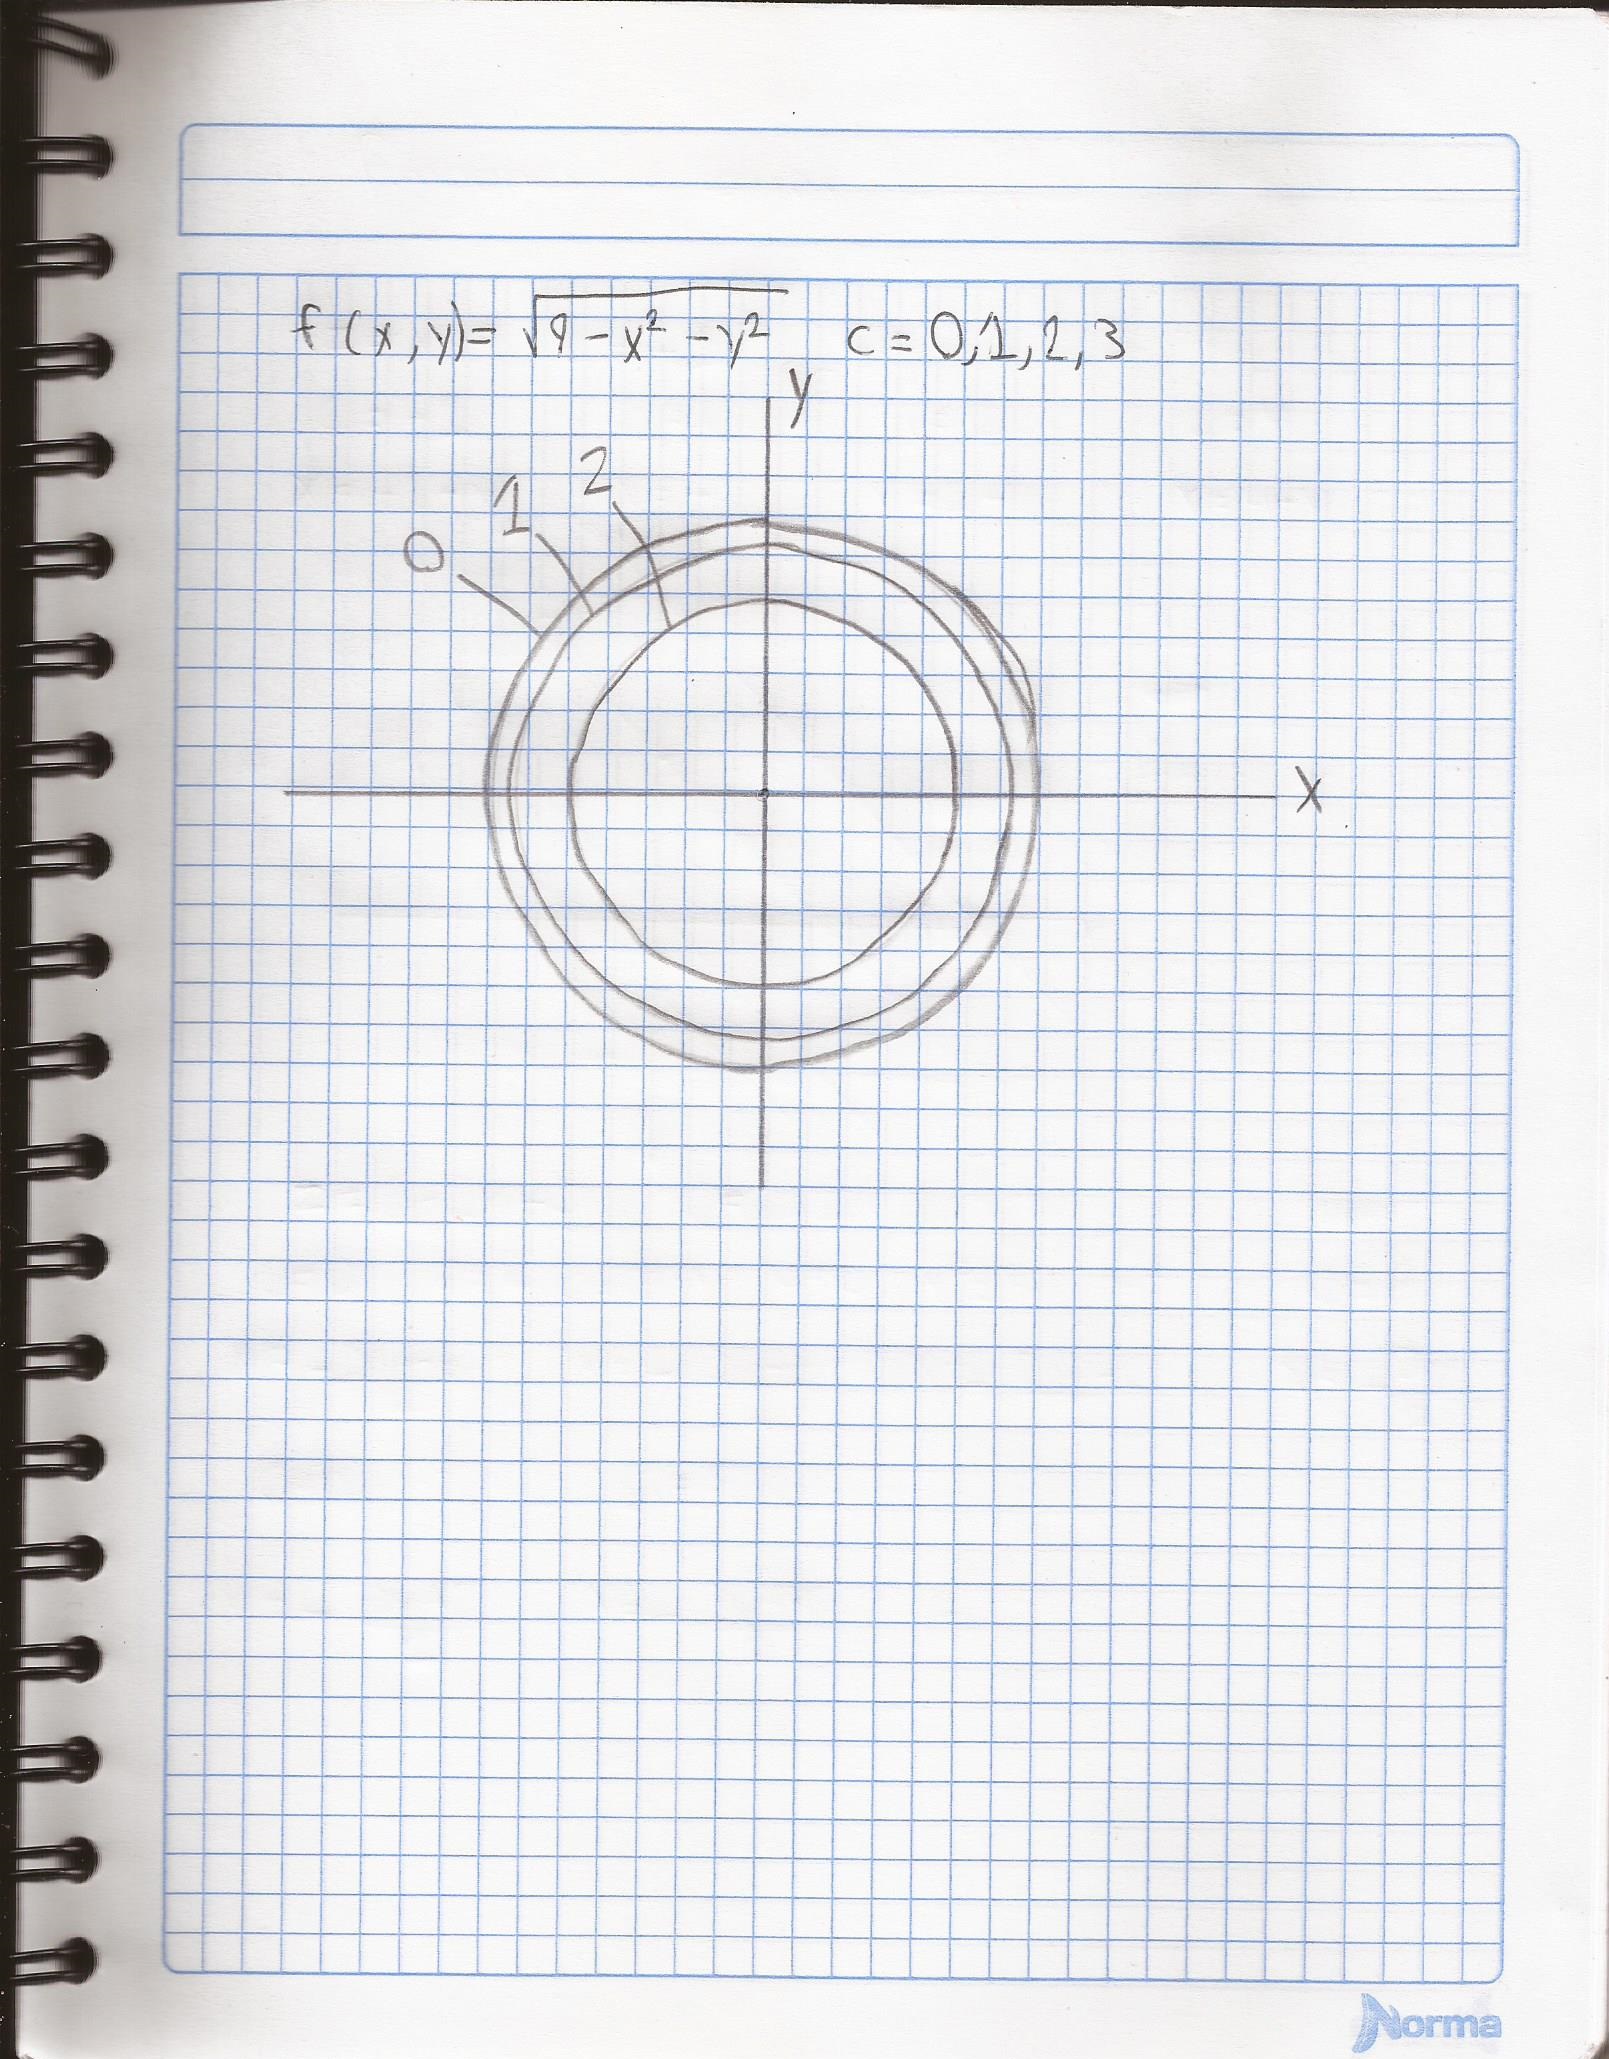 f(x,y)= √9-x²-y² c=0,1,2,3
y
2
1
0
x
Norma